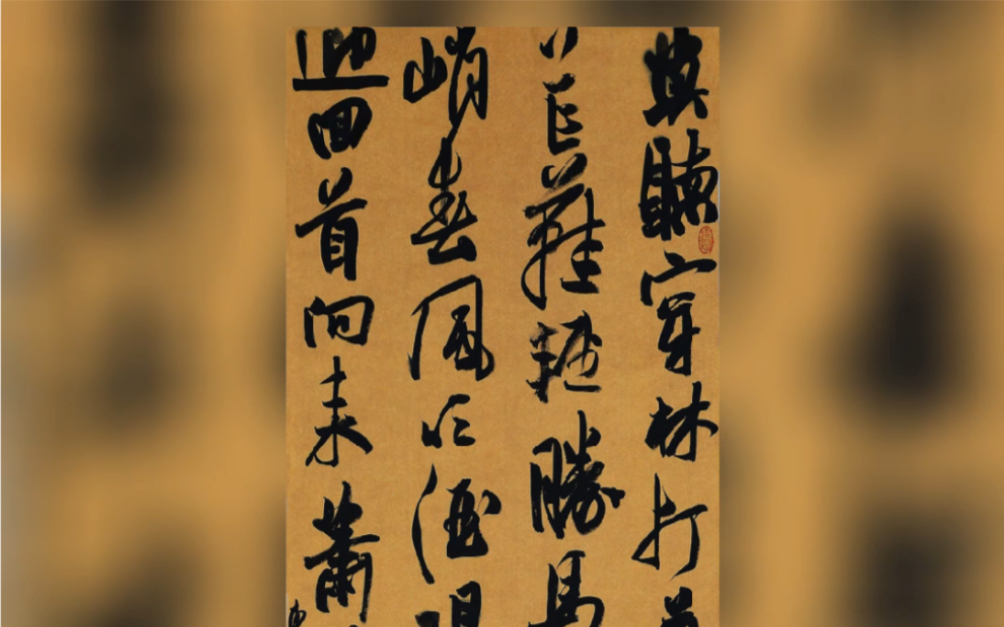 莫聽穿林打
芒鞋輕勝馬
峭春風吹酒
迎回首向来蕭